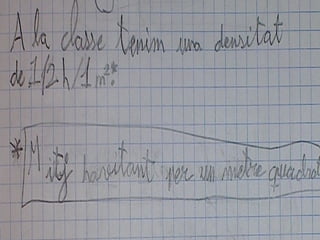 A la classe tenim una densitat
de 1/2 h/1 m²*
* Mitj havitant per un metre quadrat